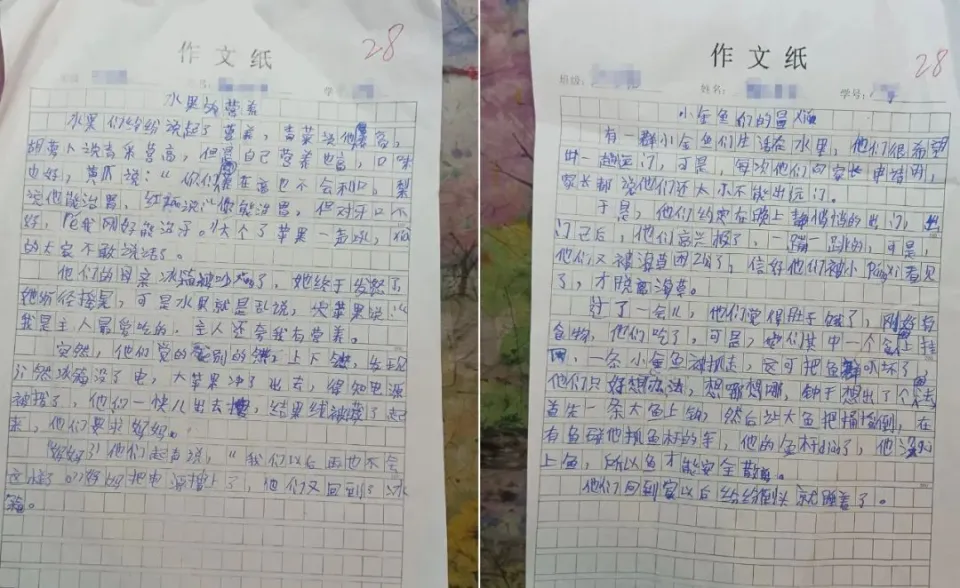 作文纸
28
水果的营养
水果们纷纷说起了营养，青菜说他高，
胡萝卜说青菜营高，但是自己营养也高，口味
也好，黄瓜说：“你们在西也不会和口，梨
说他能治胃，红柚说：“你能治胃，但对牙口不
好，吃我刚好能治牙。”大个了苹果一直吼，
的大家不敢说话了。
他们的母亲冰箱被吵了，她终于发怒了
可是水果就是乱说，大苹果说：“
我是主人最爱吃的，主人还夸我有营养。
突然，他们觉的别的上下发现
冰箱没了电，大苹果冲了出去，得知电源
被拔了，他们一快儿出去，结果线被藏了起
来，他们要求妈妈。
妈妈了！他们起声说，“我们以后再也不会
这样了，妈妈把电源插上了，他们又回到了冰
箱。
作文纸
28
班级：
姓名：
学号：
小金鱼们的冒险
有一群小金鱼们生活在水里，他们很希望
出一趟远门，可是，每次他们向家长申请时，
家长都说他们还太小不能出远门。
于是，他们约定在晚上静悄悄的出门，出
门已后，他们高兴极了，一蹦一跳的，可是，
他们又被海草困住了，信好他们被小Pángxi看见
了，才脱离海草。
过了一会儿，他们觉得肚子饿了，刚好有
食物，他们吃了，可是，她们其中一个挂
一条小金鱼被抓走，这可把鱼群吓坏了，
他们只好想办法，想哪想哪，钟于想出了个法
首先一条大鱼上钩，然后让大鱼把桶撞倒，在
有鱼碰他抓鱼杆的手，他的鱼杆掉了，他没
上鱼，所以鱼才能安全
他们回到家以后纷纷倒头就睡着了。